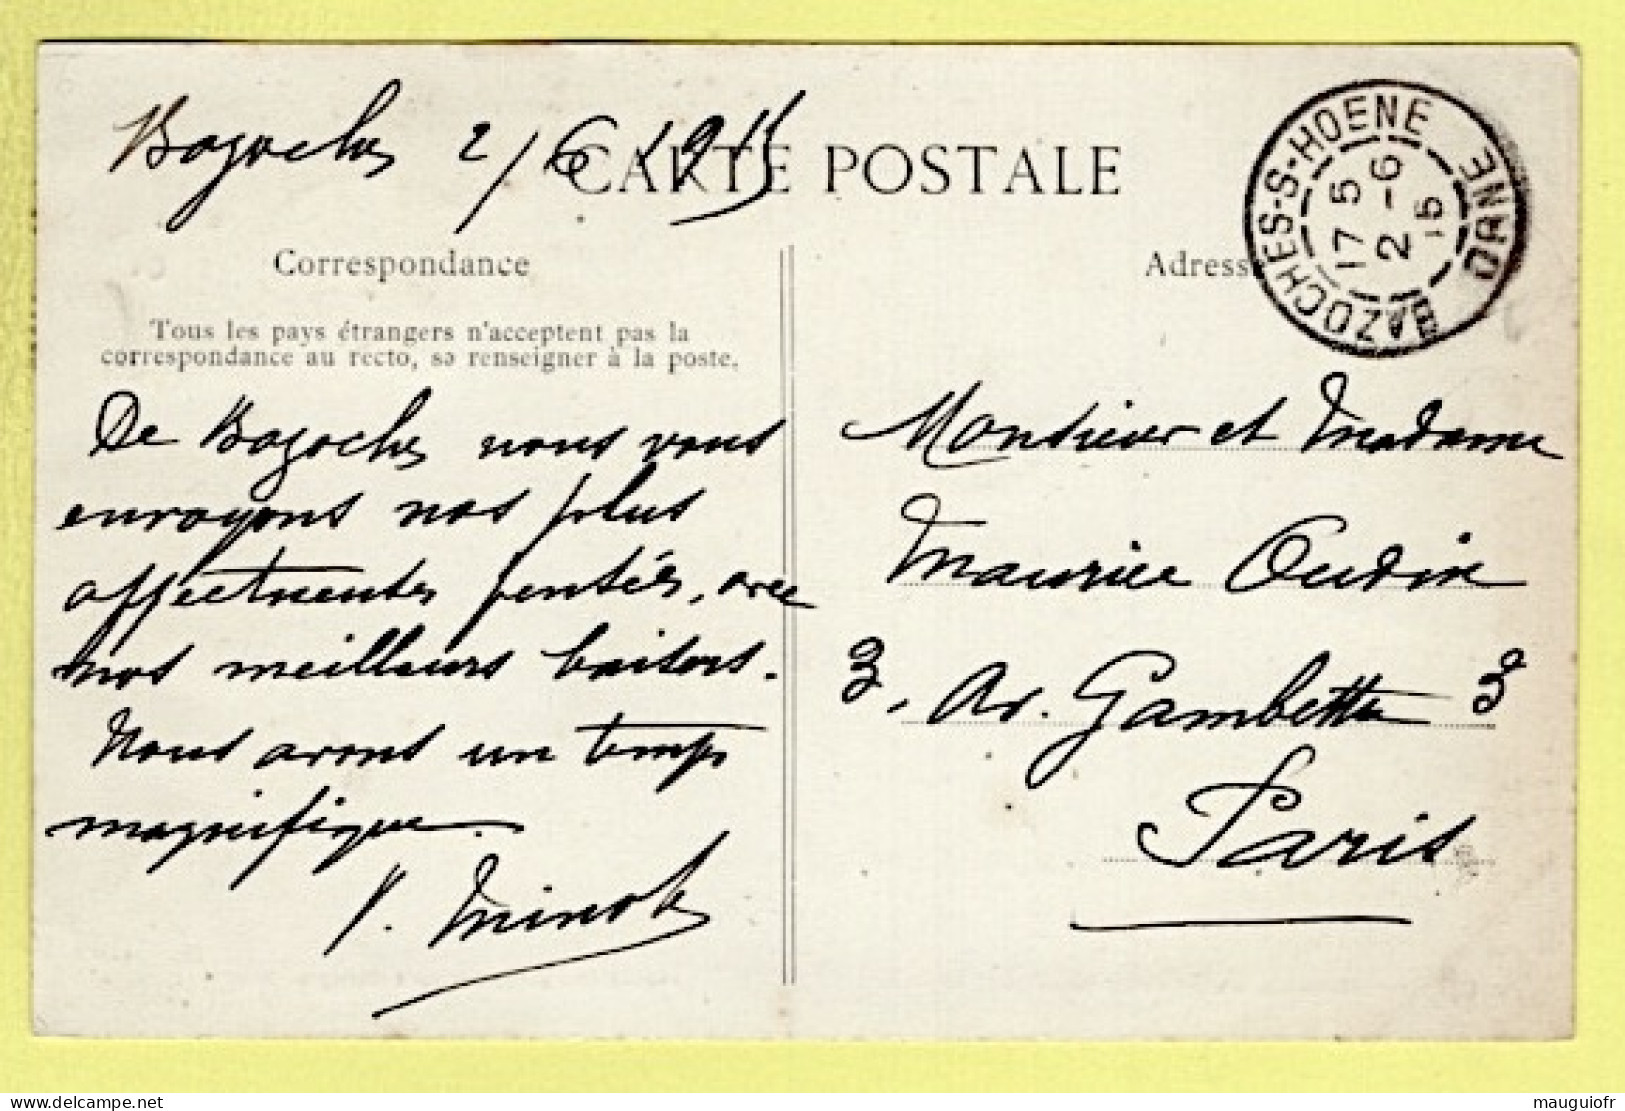 Bazoches 2/6 1915
CARTE POSTALE
BAZOCHES-S-HOENE ORNE
17 5
2 - 6
15
Correspondance
Adresse
Tous les pays étrangers n'acceptent pas la
correspondance au recto, se renseigner à la poste.
De Bazoches nous vous
envoyons nos plus
affectueuses pensées, avec
nos meilleurs baisers.
Nous avons un temps
magnifique.
V. Minot
Monsieur et Madame
Maurice Oudin
3, Av. Gambetta 3
Paris
delcampe.net
mauguiofr